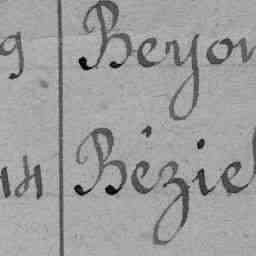 9 Beyon
14 Béziel